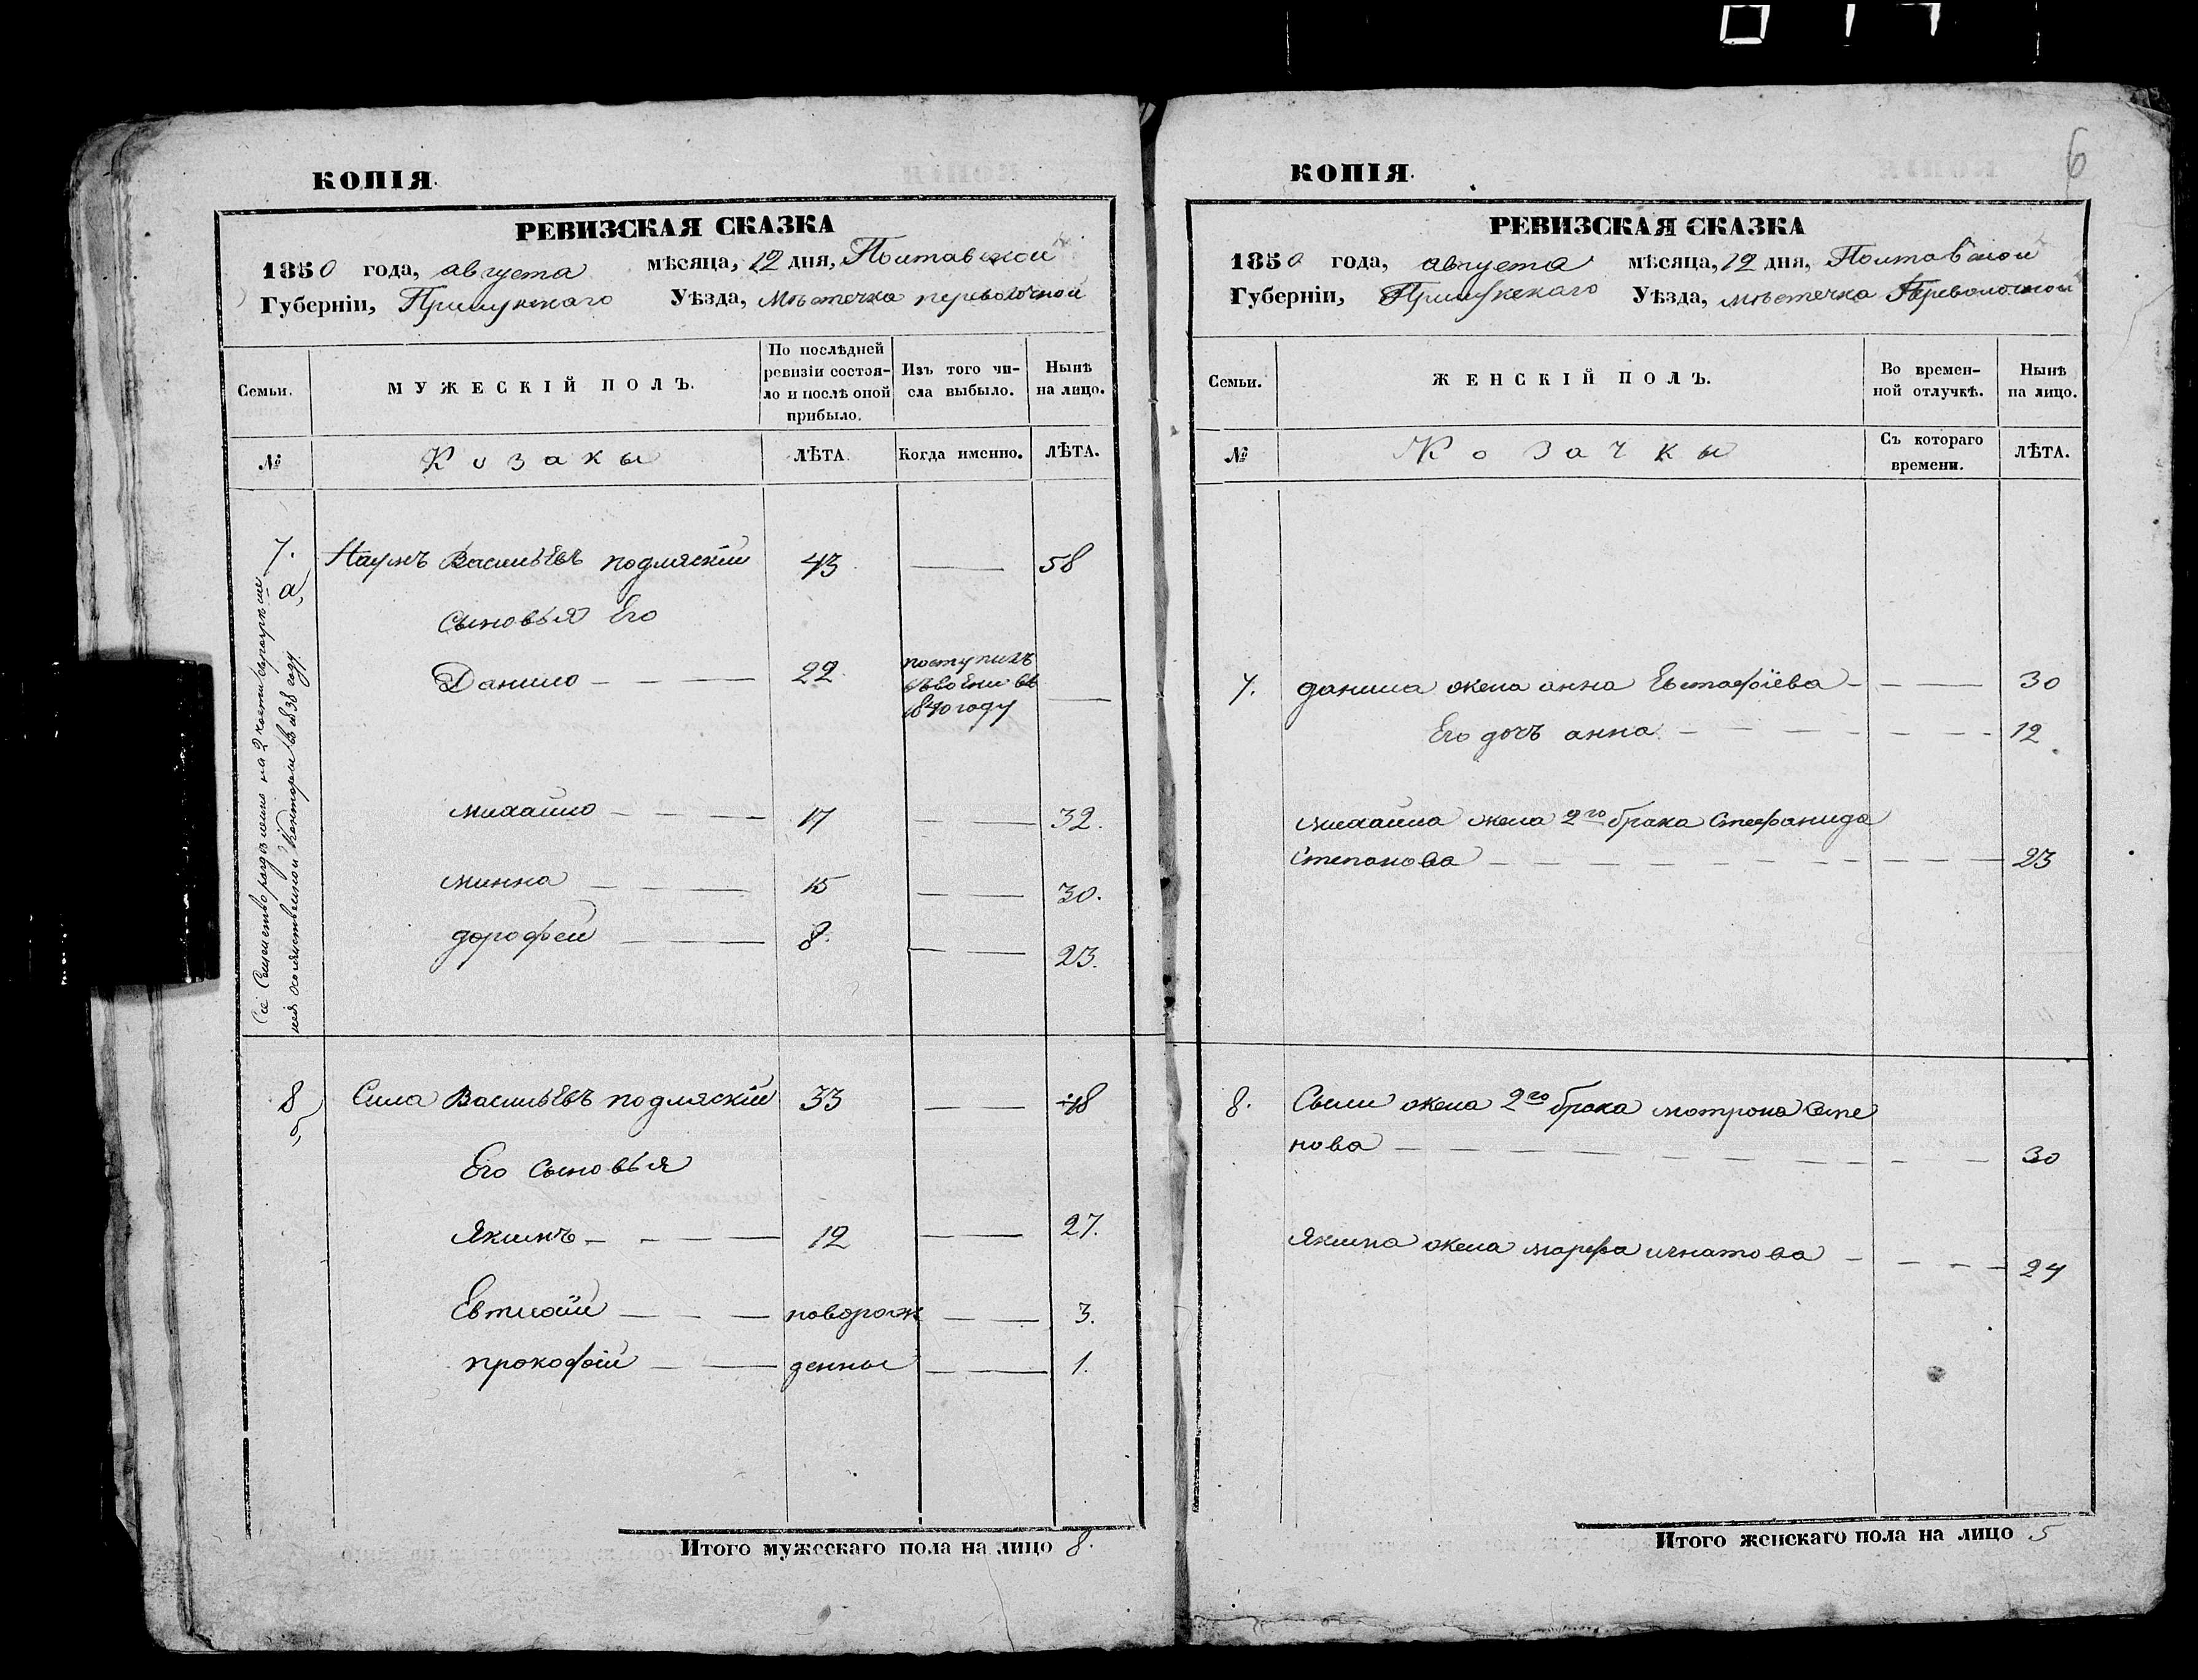 6
КОПІЯ.
РЕВИЗСКАЯ СКАЗКА
1850 года, августа мѣсяца, 12 дня, Полтавской
Губерніи, Прилукскаго Уѣзда, мѣстечка переволочной
Семьи. МУЖЕСКІЙ ПОЛЪ. По послѣдней ревизіи состоя-ло и послѣ оной прибыло. Изъ того чи-сла выбыло. Нынѣ на лицо.
№ Козакы ЛѢТА. Когда именно. ЛѢТА.
7. Наумъ Васильевъ подляскій 43 — 58
а
сыновья Его
Данило — — — 22 поступилъ
въ
1840 году —
михайло — — — 17 — — 32.
минна — — — 15 — — 30.
дорофей — — — 8. — — 23.
Сіе Семейство раздѣлено на 2 части
в 1838 году
8 Сила Васильевъ подляскій 33 — — 48
Его сыновья
Якимъ — — — — 12 — 27.
Евтихій — — — новорож — — 3.
прокофій — — денны — — 1.
Итого мужескаго пола на лицо 8.
КОПІЯ.
РЕВИЗСКАЯ СКАЗКА
1850 года, августа мѣсяца, 12 дня, Полтавской
Губерніи, Прилукскаго Уѣзда, мѣстечка Переволочной
Семьи. ЖЕНСКІЙ ПОЛЪ. Во времен-ной отлучкѣ. Нынѣ на лицо.
№ Козачкы Съ котораго времени. ЛѢТА.
7. данила жена анна Евстафіева — — — 30
Его дочь анна — — — — — — — 12
михайла жена 2го брака Стефанида
Степанова — — — — — — — — — 23
8. Сылы жена 2го брака мотрона Симе
нова — — — — — — — — — — 30
Якима жена марфа игнатова — — — — — 24
Итого женскаго пола на лицо 5